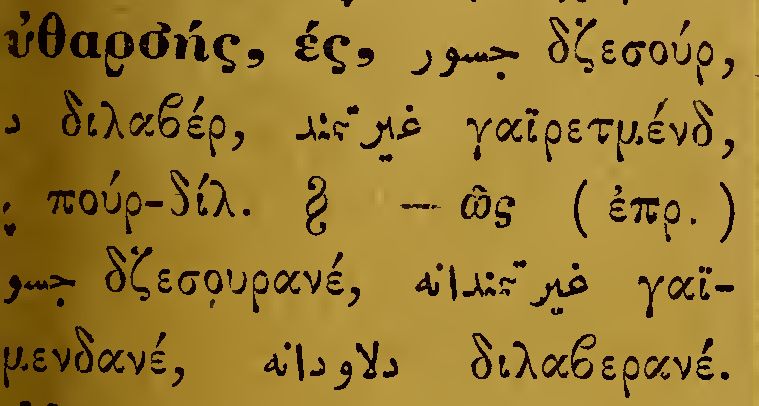 ὐθαρσής, ές, جسور δζεσούρ,
διλαβέρ, غيرتمند γαϊρετμένδ,
πούρ-δίλ. — ῶς (ἐπρ.)
δζεσουρανέ, غيرتمندانه γαϊ-
μενδανέ, دلاورانه διλαβερανέ.